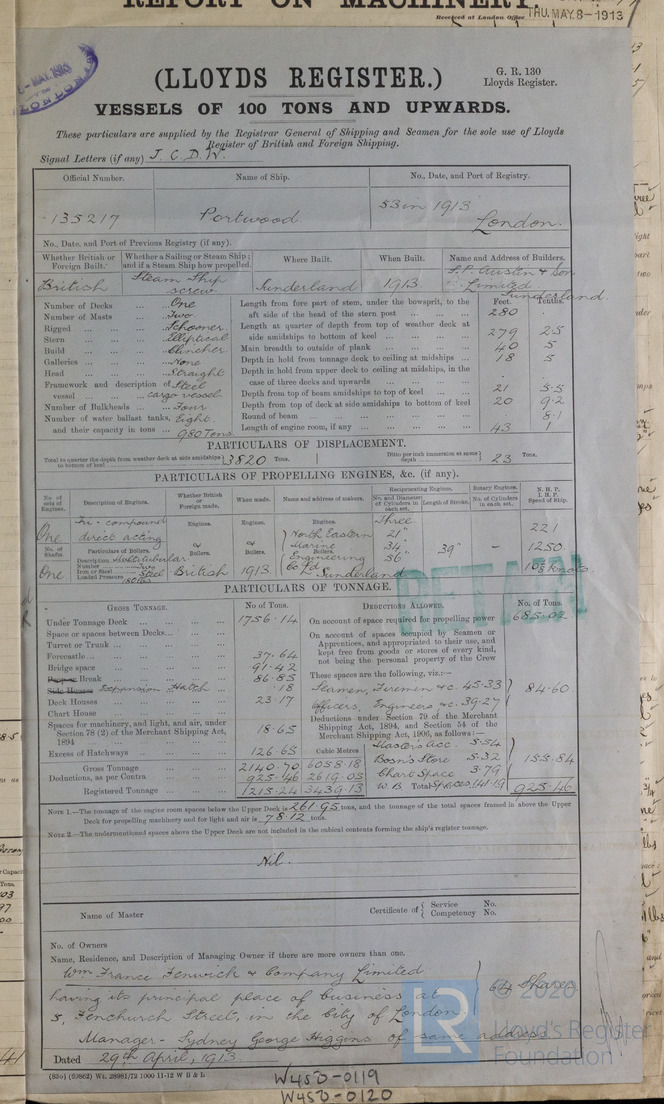 REPORT ON MACHINERY.
Received at London Office THU. MAY. 8 - 1913
(LLOYDS REGISTER.)
G. R. 130
Lloyds Register.
VESSELS OF 100 TONS AND UPWARDS.
These particulars are supplied by the Registrar General of Shipping and Seamen for the sole use of Lloyds
Register of British and Foreign Shipping.
Signal Letters (if any) J. C. D. W.
Official Number. Name of Ship. No., Date, and Port of Registry.
135217 Portwood 53 in 1913
London.
No., Date, and Port of Previous Registry (if any).
Whether British or Foreign Built. Whether a Sailing or Steam Ship; and if a Steam Ship how propelled. Where Built. When Built. Name and Address of Builders.
British Steam Ship screw Sunderland 1913 S. P. Austin & Son Limited Sunderland
Number of Decks One
Number of Masts Two
Rigged Schooner
Stern Elliptical
Build Clincher
Galleries None
Head Straight
Framework and description of vessel Steel cargo vessel
Number of Bulkheads Four
Number of water ballast tanks, and their capacity in tons Eight 980 Tons
Feet. Tenths.
Length from fore part of stem, under the bowsprit, to the aft side of the head of the stern post 280
Length at quarter of depth from top of weather deck at side amidships to bottom of keel 279 25
Main breadth to outside of plank 40 5
Depth in hold from tonnage deck to ceiling at midships 18 5
Depth in hold from upper deck to ceiling at midships, in the case of three decks and upwards
Depth from top of beam amidships to top of keel 21 5.5
Depth from top of deck at side amidships to bottom of keel 20 9.2
Round of beam 8.1
Length of engine room, if any 43 1
PARTICULARS OF DISPLACEMENT.
Total to quarter the depth from weather deck at side amidships to bottom of keel 3820 Tons. Ditto per inch immersion at same depth 23 Tons.
PARTICULARS OF PROPELLING ENGINES, &c. (if any).
No. of sets of Engines. Description of Engines. Whether British or Foreign made. When made. Name and address of makers. Reciprocating Engines. No. and Diameter of Cylinders in each set. Length of Stroke. Rotary Engines. No. of Cylinders in each set. N. H. P. I. H. P. Speed of Ship.
One Tri-compound direct acting
Engines. Engines. Engines. Three 21" 34" 56 39" - 221 1250 10⅜ knots
No. of Shafts. Particulars of Boilers. or Boilers. or Boilers. Boilers.
North Eastern Marine Engineering Co Ld Sunderland
Description Multitubular
Number Two
Iron or Steel Steel
Loaded Pressure 180 lbs
One British 1913
RETAIN
PARTICULARS OF TONNAGE.
GROSS TONNAGE. No. of Tons.
Under Tonnage Deck 1756.14
Space or spaces between Decks
Turret or Trunk
Forecastle 37.64
Bridge space 91.42
Poop or Break 86.85
Side Houses Expansion Hatch .18
Deck Houses 23.17
Chart House
Spaces for machinery, and light, and air, under Section 78 (2) of the Merchant Shipping Act, 1894 18.65
Excess of Hatchways 126.65
Cubic Metres
Gross Tonnage 2140.70 6058.18
Deductions, as per Contra 925.46 2619.05
Registered Tonnage 1215.24 3439.13
DEDUCTIONS ALLOWED. No. of Tons.
On account of space required for propelling power 685.02
On account of spaces occupied by Seamen or Apprentices, and appropriated to their use, and kept free from goods or stores of every kind, not being the personal property of the Crew
These spaces are the following, viz.:—
Seamen, Firemen &c. 45.33
Officers, Engineers &c. 39.27
84.60
Deductions under Section 79 of the Merchant Shipping Act, 1894, and Section 54 of the Merchant Shipping Act, 1906, as follows:—
Master's Acc. 5.54
Bosn's Store 5.32
Chart Space 3.79
W. B. Spaces 141.19
155.84
Total 925.46
NOTE 1.—The tonnage of the engine room spaces below the Upper Deck is 261.95 tons, and the tonnage of the total spaces framed in above the Upper
Deck for propelling machinery and for light and air is 78.12 tons.
NOTE 2.—The undermentioned spaces above the Upper Deck are not included in the cubical contents forming the ship's register tonnage.
Nil.
Name of Master Certificate of Service No.
Competency No.
No. of Owners
Name, Residence, and Description of Managing Owner if there are more owners than one.
Wm France Fenwick & Company Limited
having its principal place of business at 64 Shares
5, Fenchurch Street, in the City of London.
Manager - Sydney George Higgins of same address
Dated 29th April, 1913.
(830) (99862) Wt. 28981/72 1000 11-12 W B & L
W450-0119
W450-0120
LR
© 2020
Lloyd's Register
Foundation